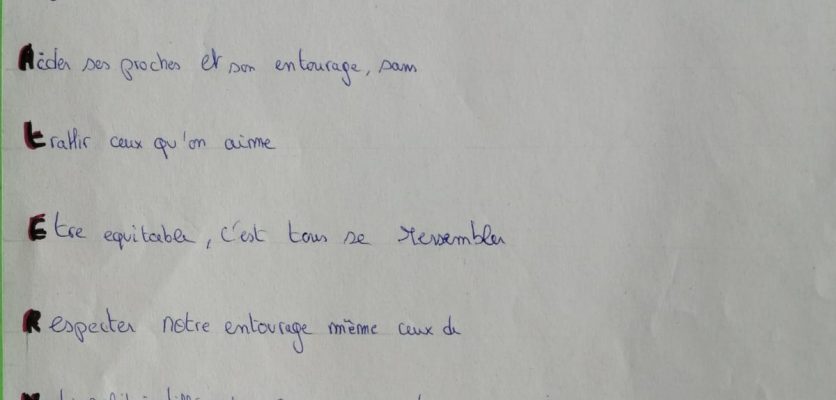 Aider ses proches et son entourage, sans
trahir ceux qu'on aime
Etre equitable, c'est tous se ressembler
Respecter notre entourage même ceux de